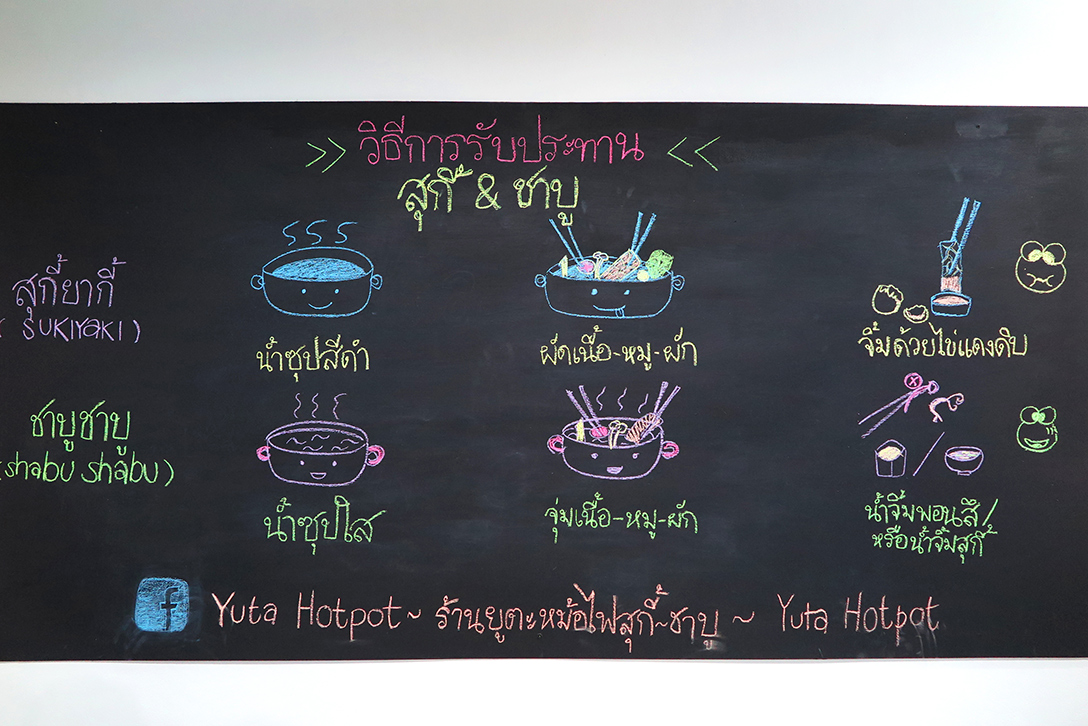 >> วิธีการรับประทาน <<
สุกี้ & ชาบู
สุกี้ยากี้
( SUKIYAKI )
น้ำซุปสีดำ
ผัดเนื้อ-หมู-ผัก
จิ้มด้วยไข่แดงดิบ
ชาบูชาบู
(shabu shabu)
น้ำซุปใส
จุ่มเนื้อ-หมู-ผัก
น้ำจิ้มพอนสึ/
หรือน้ำจิ้มสุกี้
f Yuta Hotpot ~ ร้านยูตะหม้อไฟสุกี้~ชาบู ~ Yuta Hotpot